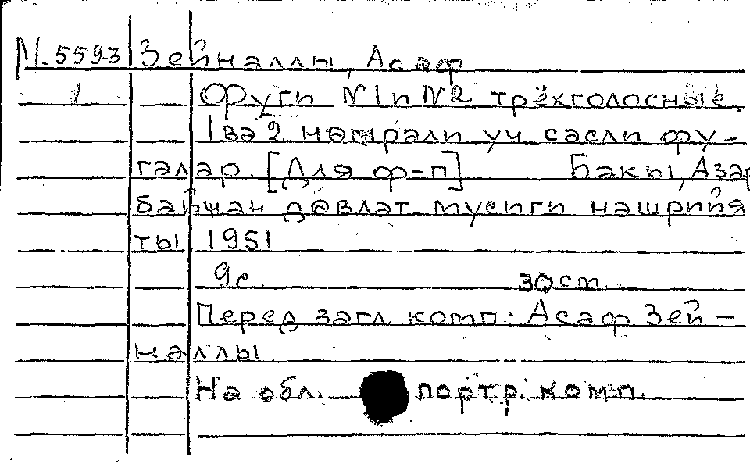 М.5593 Зейналлы, Асаф
1 Фуги №1 и №2 трёхголосные.
1 вə 2 нөмрəли үч сəсли фу-
галар. [Для ф-п] Бакы, Азəр
байҹан дөвлəт мусиги нəшрийя
ты 1951
9с. 30 см.
Перед загл. комп: Асаф Зей-
наллы
На обл. портр. комп.